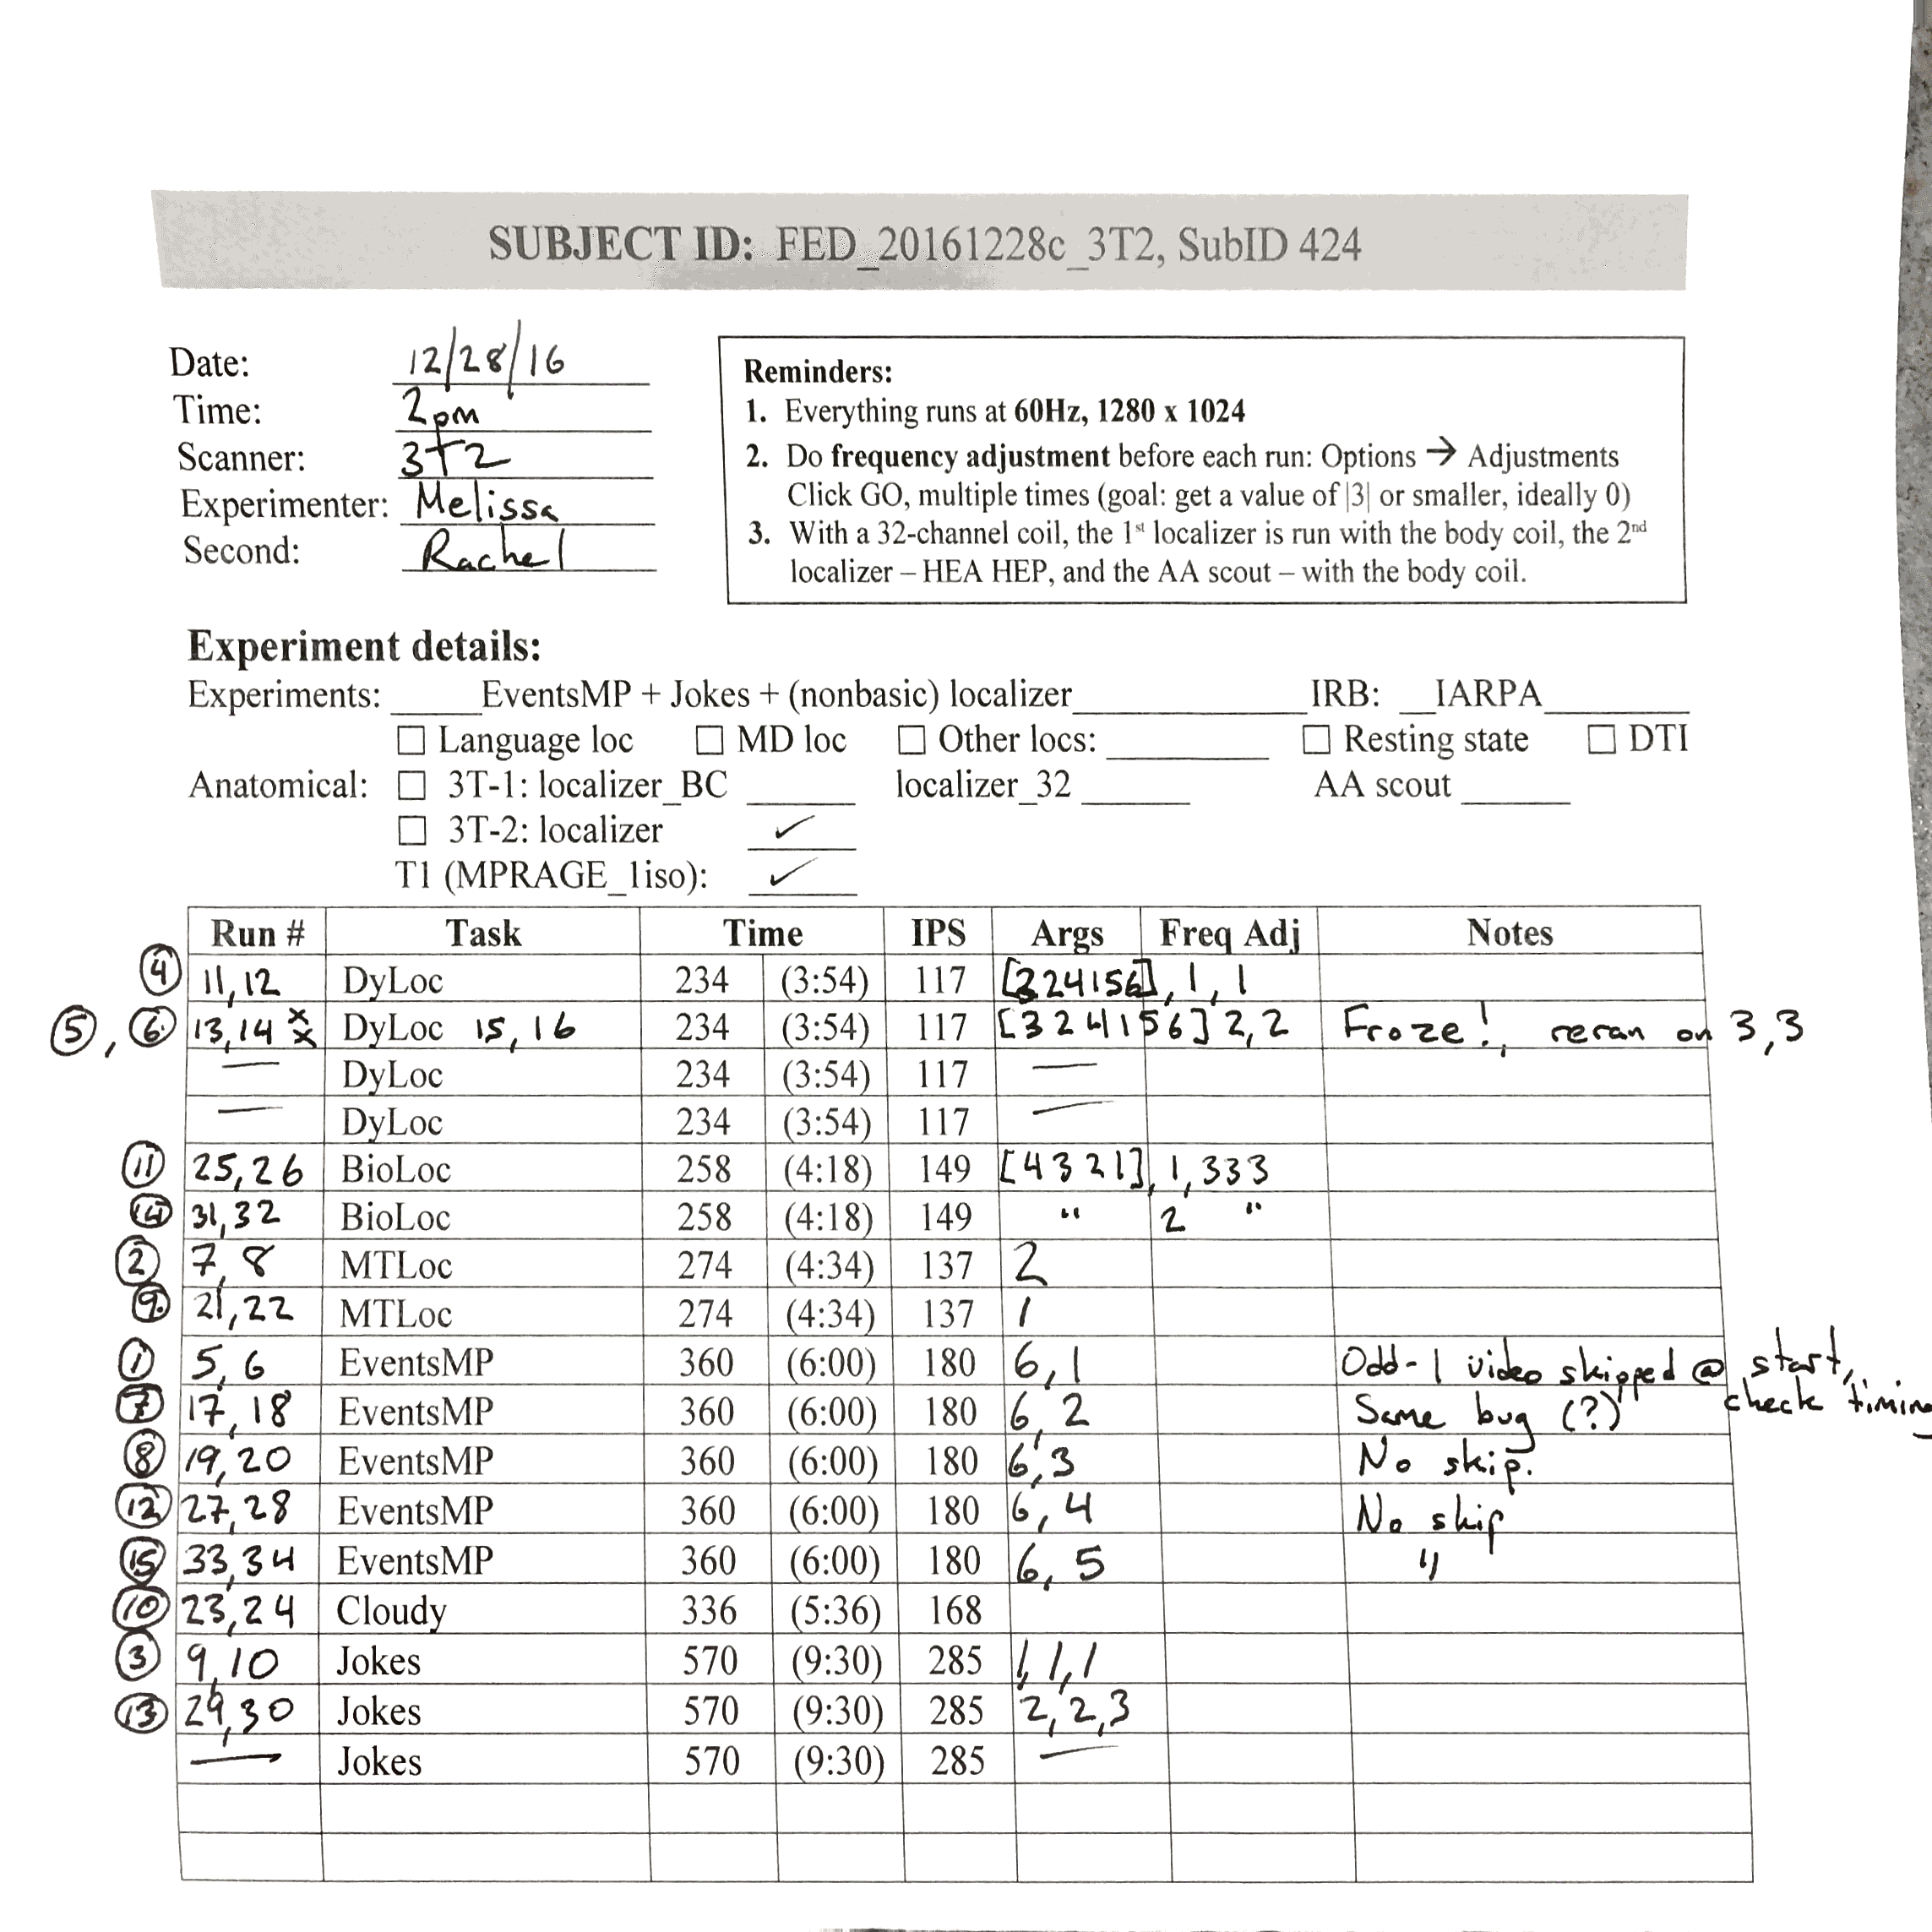 SUBJECT ID: FED_20161228c_3T2, SubID 424
Date: 12/28/16
Time: 2pm
Scanner: 3T2
Experimenter: Melissa
Second: Rachel
Reminders:
1. Everything runs at 60Hz, 1280 x 1024
2. Do frequency adjustment before each run: Options → Adjustments
Click GO, multiple times (goal: get a value of |3| or smaller, ideally 0)
3. With a 32-channel coil, the 1st localizer is run with the body coil, the 2nd
localizer – HEA HEP, and the AA scout – with the body coil.
Experiment details:
Experiments: _____EventsMP + Jokes + (nonbasic) localizer_____________ IRB: __IARPA________
☐ Language loc ☐ MD loc ☐ Other locs: _________ ☐ Resting state ☐ DTI
Anatomical: ☐ 3T-1: localizer_BC ______ localizer_32 ______ AA scout ______
☐ 3T-2: localizer ✓
T1 (MPRAGE_1iso): ✓
Run # Task Time IPS Args Freq Adj Notes
④ 11,12 DyLoc 234 (3:54) 117 [324156], 1, 1
⑤, ⑥ 13,14 x x DyLoc 15, 16 234 (3:54) 117 [324156] 2,2 Froze!, reran on 3,3
— DyLoc 234 (3:54) 117 —
— DyLoc 234 (3:54) 117 —
⑪ 25,26 BioLoc 258 (4:18) 149 [4321], 1,333
⑭ 31,32 BioLoc 258 (4:18) 149 " 2 "
② 7,8 MTLoc 274 (4:34) 137 2
⑨ 21,22 MTLoc 274 (4:34) 137 1
① 5,6 EventsMP 360 (6:00) 180 6,1 Odd-1 video skipped @ start, check timing
⑦ 17,18 EventsMP 360 (6:00) 180 6,2 Same bug (?)
⑧ 19,20 EventsMP 360 (6:00) 180 6,3 No skip.
⑫ 27,28 EventsMP 360 (6:00) 180 6,4 No skip
⑮ 33,34 EventsMP 360 (6:00) 180 6,5 "
⑩ 23,24 Cloudy 336 (5:36) 168
③ 9,10 Jokes 570 (9:30) 285 1,1,1
⑬ 29,30 Jokes 570 (9:30) 285 2,2,3
— Jokes 570 (9:30) 285 —